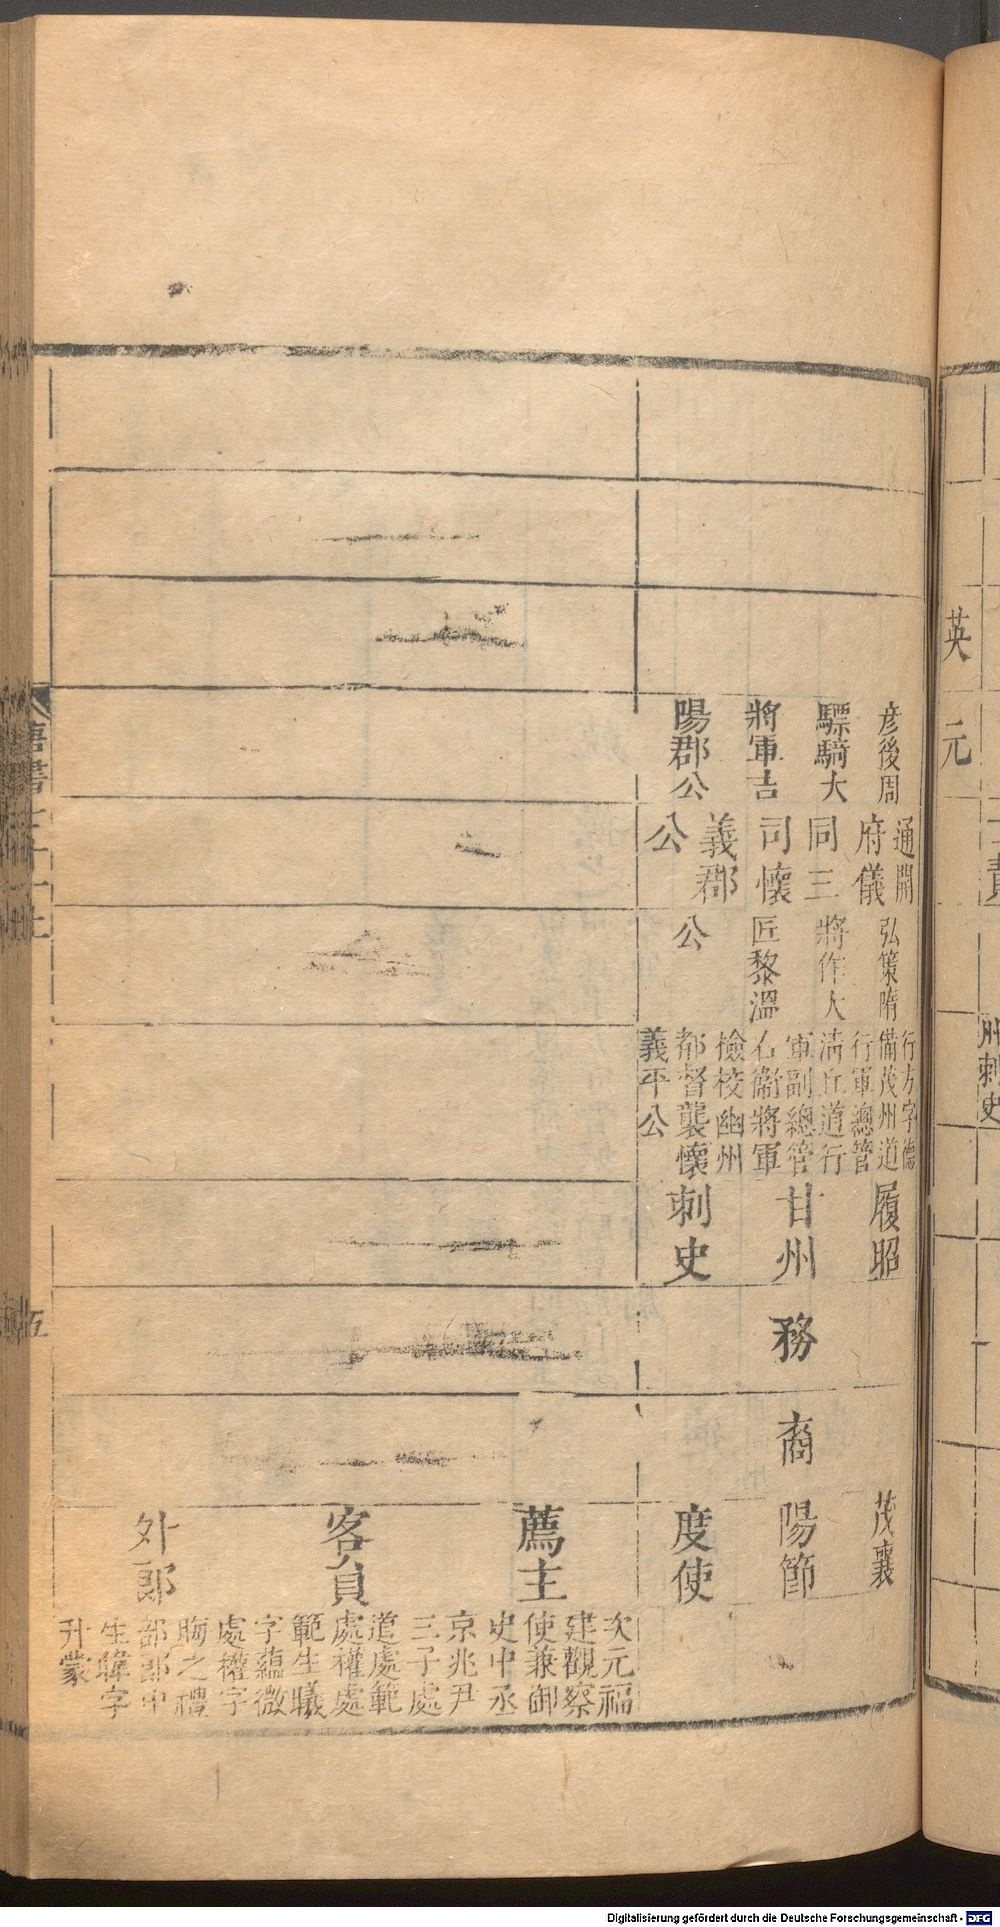 彦後周
驃騎大
將軍吉
陽郡公
通開
府儀
同三
司懷
義郡
公
弘策隋
將作大
匠黎溫
公
行方字德
備茂州道
行軍總管
淸丘道行
軍副總管
右衞將軍
檢校幽州
都督襲懷
義平公
履昭
甘州
刺史
務
裔
茂襄
陽節
度使
薦主
客員
外郎
次元福
建觀察
使兼御
史中丞
京兆尹
三子處
道處範
處權處
範生曦
字蘊微
處權字
晦之禮
部郎中
生暐字
升蒙
唐書
五
英
元
州刺史
Digitalisierung gefördert durch die Deutsche Forschungsgemeinschaft - DFG